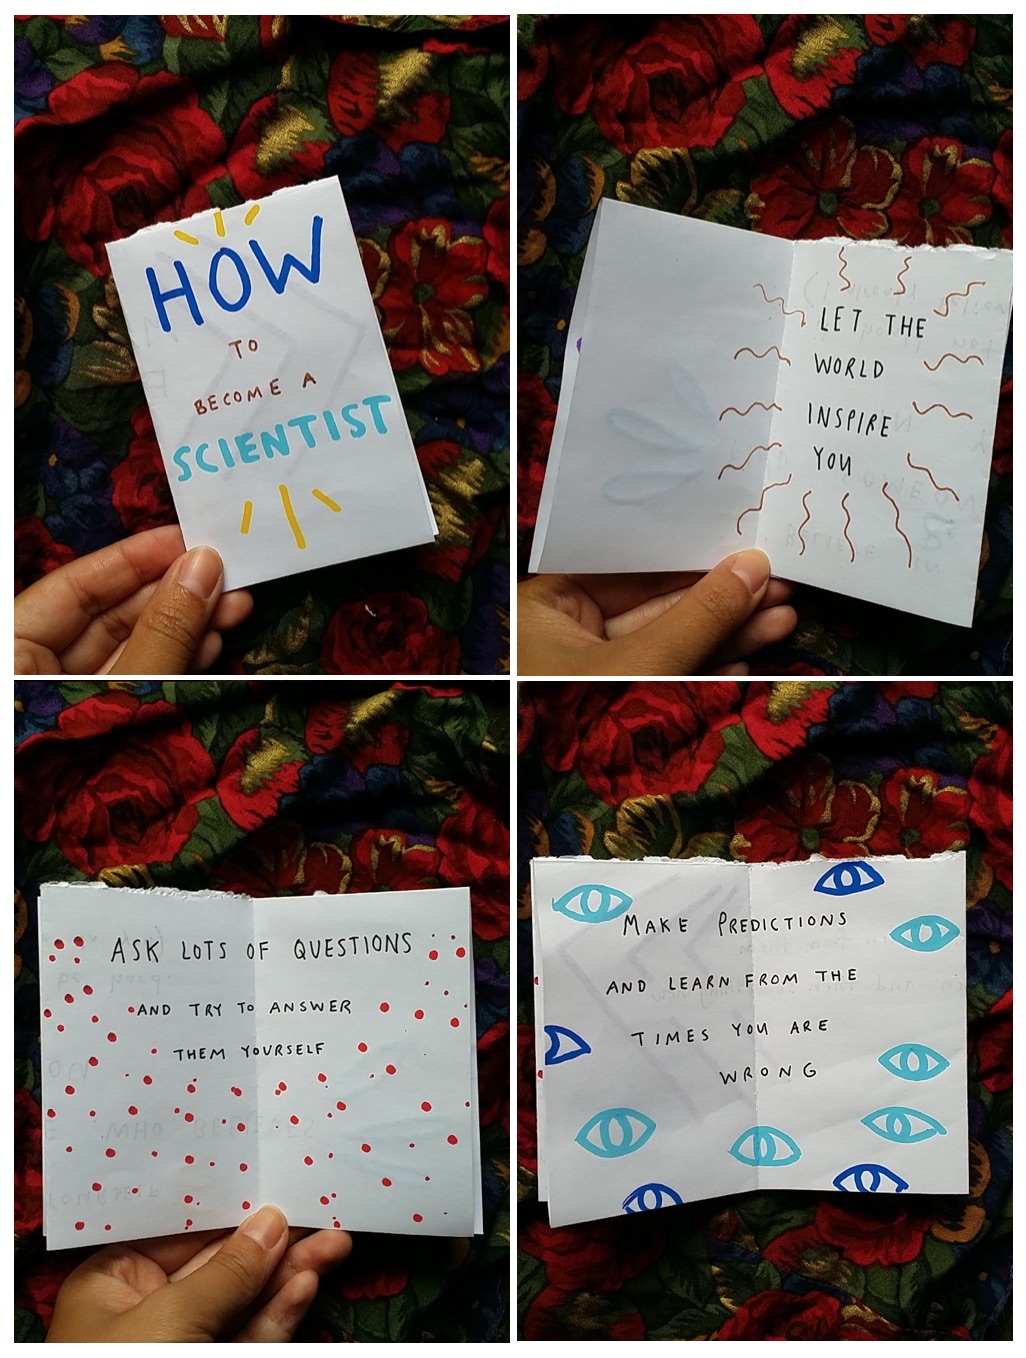 HOW
TO
BECOME A
SCIENTIST
LET THE
WORLD
INSPIRE
YOU
ASK LOTS OF QUESTIONS
AND TRY TO ANSWER
THEM YOURSELF
MAKE PREDICTIONS
AND LEARN FROM THE
TIMES YOU ARE
WRONG